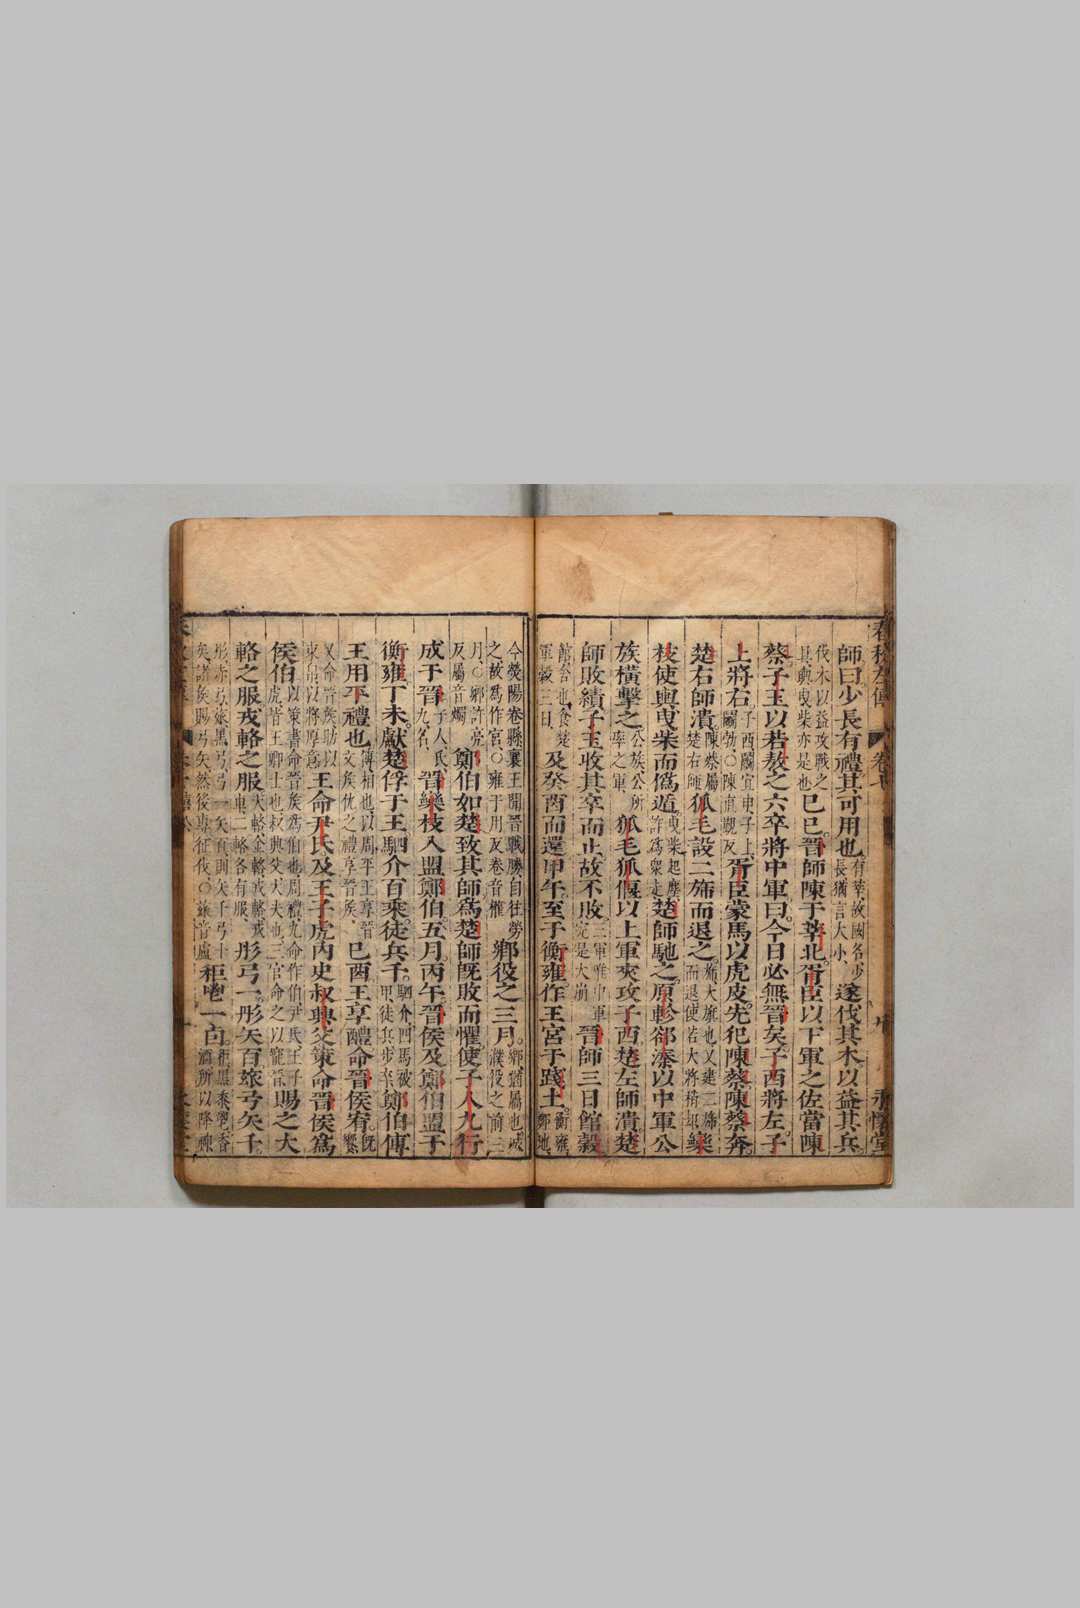 春秋左傳　卷七　十　永懷堂
師曰少長有禮其可用也有莘故國名少長猶言大小遂伐其木以益其兵
伐木以益攻戰之具輿曳柴亦是也已巳晉師陳于莘北胥臣以下軍之佐當陳
蔡子玉以若敖之六卒將中軍曰今日必無晉矣子西將左子
上將右子西鬭宜申子上鬭勃○陳直覲反胥臣蒙馬以虎皮先犯陳蔡陳蔡奔
楚右師潰陳蔡屬楚右師狐毛設二旆而退之旆大旗也又建二旆而退使若大將稍却欒
枝使輿曳柴而僞遁曳柴起塵詐爲衆走楚師馳之原軫郤溱以中軍公
族橫擊之公族公所率之軍狐毛狐偃以上軍夾攻子西楚左師潰楚
師敗績子玉收其卒而止故不敗三軍唯中軍完是大崩晉師三日館穀
館舍也食楚軍穀三日及癸酉而還甲午至于衡雍作王宮于踐土衡雍鄭地
今熒陽卷縣襄王聞晉戰勝自往勞之故爲作宮○雍于用反卷音權鄉役之三月鄉猶屬也城濮役之前三
月○鄉許亮反屬音燭鄭伯如楚致其師爲楚師旣敗而懼使子人九行
成于晉子人氏九名晉欒枝入盟鄭伯五月丙午晉侯及鄭伯盟于
衡雍丁未獻楚俘于王駟介百乘徒兵千駟介四馬被甲徒兵步卒鄭伯傅
王用平禮也傅相也以周平王享晉文侯仇之禮享晉侯已酉王享醴命晉侯宥旣饗
又命晉侯助以束帛以將厚意王命尹氏及王子虎內史叔興父策命晉侯爲
侯伯以策書命晉侯爲伯也周禮九命作伯尹氏王子虎皆王卿士也叔興父大夫也三官命之以寵晉賜之大
輅之服戎輅之服大輅金輅戎輅戎車二輅各有服彤弓一彤矢百玈弓矢千
彤赤弓玈黑弓弓一矢百則矢千弓十矣諸侯賜弓矢然後專征伐○玈音盧秬鬯一卣秬黑黍鬯香酒所以降神